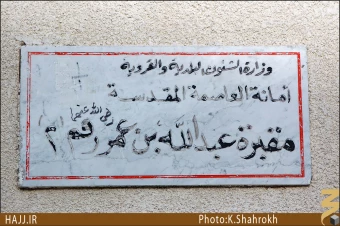 وزارة الشئون البلدية والقروية
أمانة العاصمة المقدسة
رضي الله عنهما
مقبرة عبدالله بن عمر رقم
HAJJ.IR
Photo:K.Shahrokh